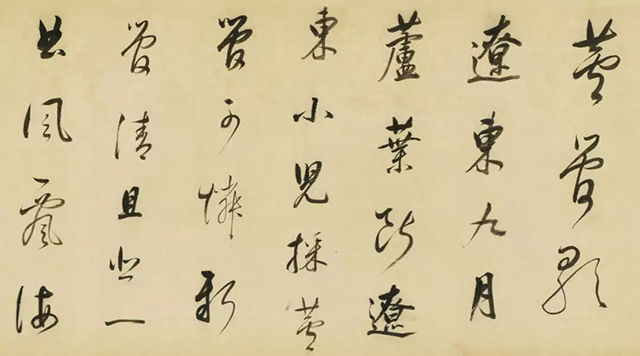 蘆管歌
遼東九月
蘆葉斷遼
東小兒採蘆
管可憐新
管清且悲一
曲風飄海